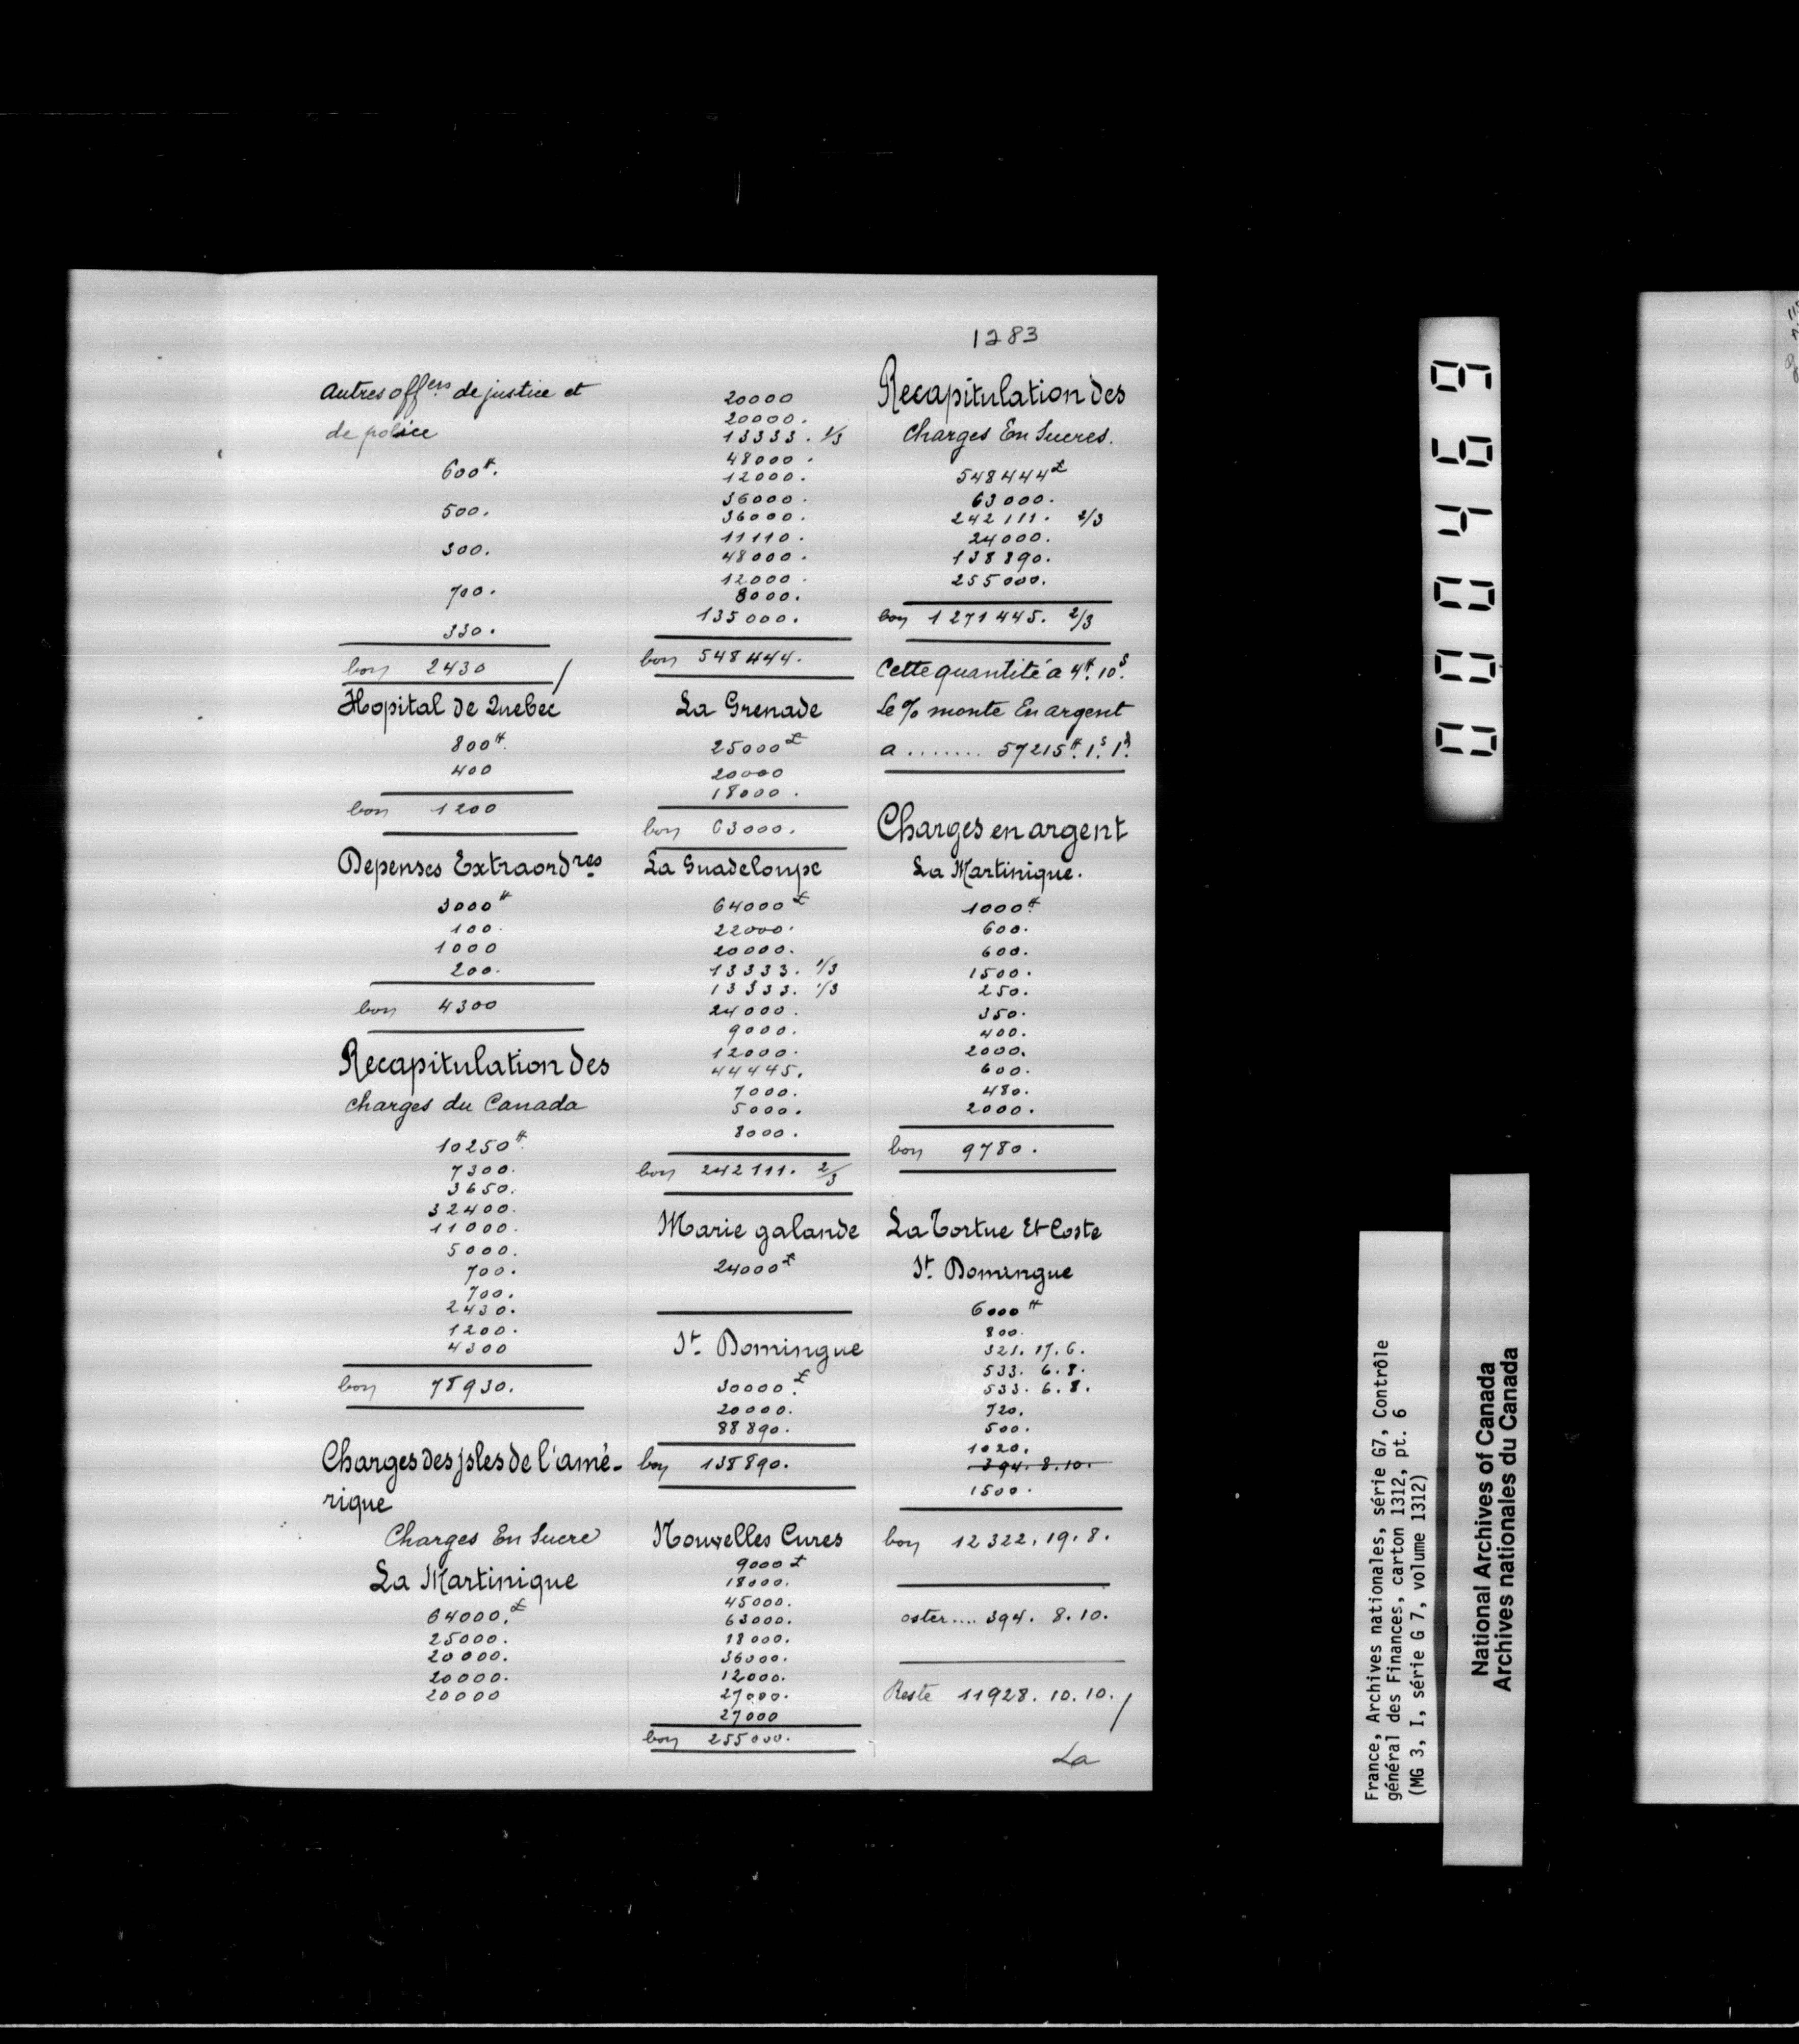 1283
Autres off.ers de justice et
de police
600#.
500.
300.
700.
330.
bon 2430 /
Hopital de Quebec
800#.
400
bon 1200
Depenses Extraord.res
3000#
100.
1000
200.
bon 4300
Recapitulation des
charges du Canada
10250#.
7300.
3650.
32400.
11000.
5000.
700.
700.
2430.
1200.
4300
bon 78930.
Charges des jsles de l'amé-
rique
Charges En Sucre
La Martinique
64000.£
25000.
20000.
20000.
20000
20000
20000.
13333. 1/3
48000.
12000.
36000.
36000.
11110.
48000.
12000.
8000.
135000.
bon 548444.
La Grenade
25000£
20000
18000.
bon 63000.
La Guadeloupe
64000£
22000.
20000.
13333. 1/3
13333. 1/3
24000.
9000.
12000.
44445.
7000.
5000.
8000.
bon 242111. 2/3
Marie galande
24000£
St. Domingue
30000.£
20000.
88890.
bon 138890.
Nouvelles Cures
9000£
18000.
45000.
63000.
18000.
36000.
12000.
27000.
27000
bon 255000.
Recapitulation des
charges En Sucres.
548444£
63000.
242111. 2/3
24000.
138890.
255000.
bon 1271445. 2/3
Cette quantité a 4#. 10s.
Le % monte En argent
a ........ 57215#. 1s. 1d.
Charges en argent
La Martinique.
1000#
600.
600.
1500.
250.
350.
400.
2000.
600.
480.
2000.
bon 9780.
La Tortue Et Coste
St. Domingue
6000#
800.
321. 17. 6.
533. 6. 8.
533. 6. 8.
720.
500.
1020.
394. 8. 10.
1500.
bon 12322. 19. 8.
oster.... 394. 8. 10.
Reste 11928. 10. 10. /
La
000469
France, Archives nationales, série G7, Contrôle
général des Finances, carton 1312, pt. 6
(MG 3, I, série G 7, volume 1312)
National Archives of Canada
Archives nationales du Canada